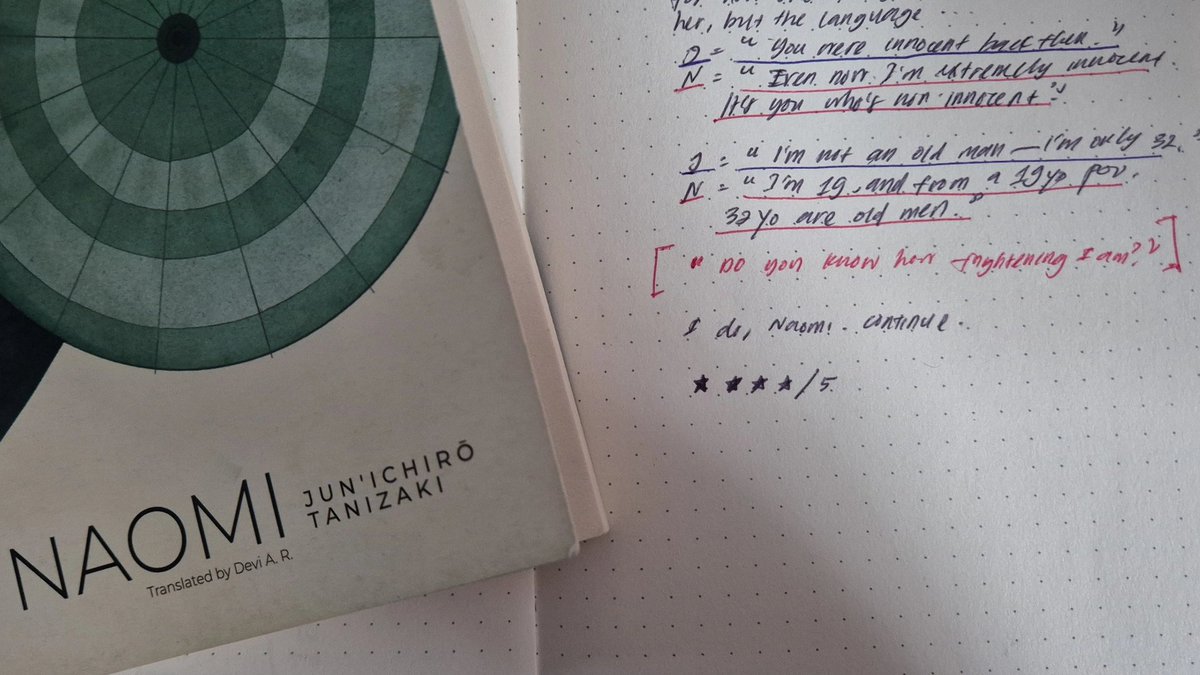 NAOMI
JUN'ICHIRŌ
TANIZAKI
Translated by Devi A. R.
her, but the language
J = " You were innocent back then. "
N = " Even now I'm extremely innocent.
It's you who's non innocent "
J = " I'm not an old man — I'm only 32. "
N = " I'm 19, and from a 19yo pov.
32 yo are old men. "
[ " Do you know how frightening I am? " ]
I do, Naomi. continue.
★ ★ ★ ★ / 5